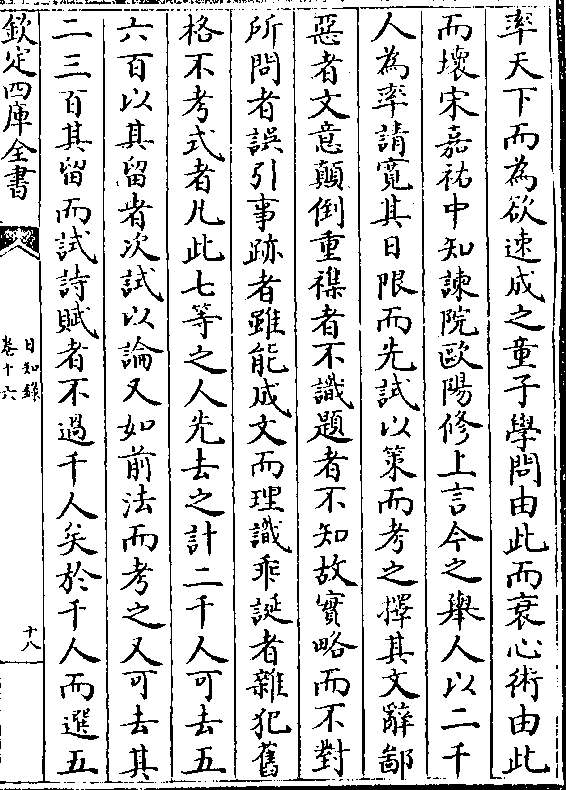 率天下而為欲速成之童子學問由此而衰心術由此
而壞宋嘉祐中知諫院歐陽修上言今之舉人以二千
人為率請寛其日限而先試以策而考之擇其文辭鄙
惡者文意顛倒重襍者不識題者不知故實略而不對
所問者誤引事跡者雖能成文而理識乖誕者雜犯舊
格不考式者凡此七等之人先去之計二千人可去五
六百以其留者次試以論又如前法而考之又可去其
二三百其留而試詩賦者不過千人矣於千人而選五
欽定四庫全書
日知錄
卷十六
十八